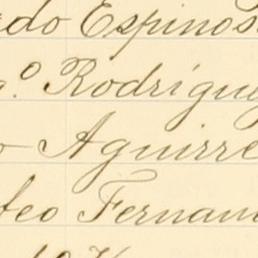 do Espinos
g.º Rodrígue
o Aguirre
teo Fernan